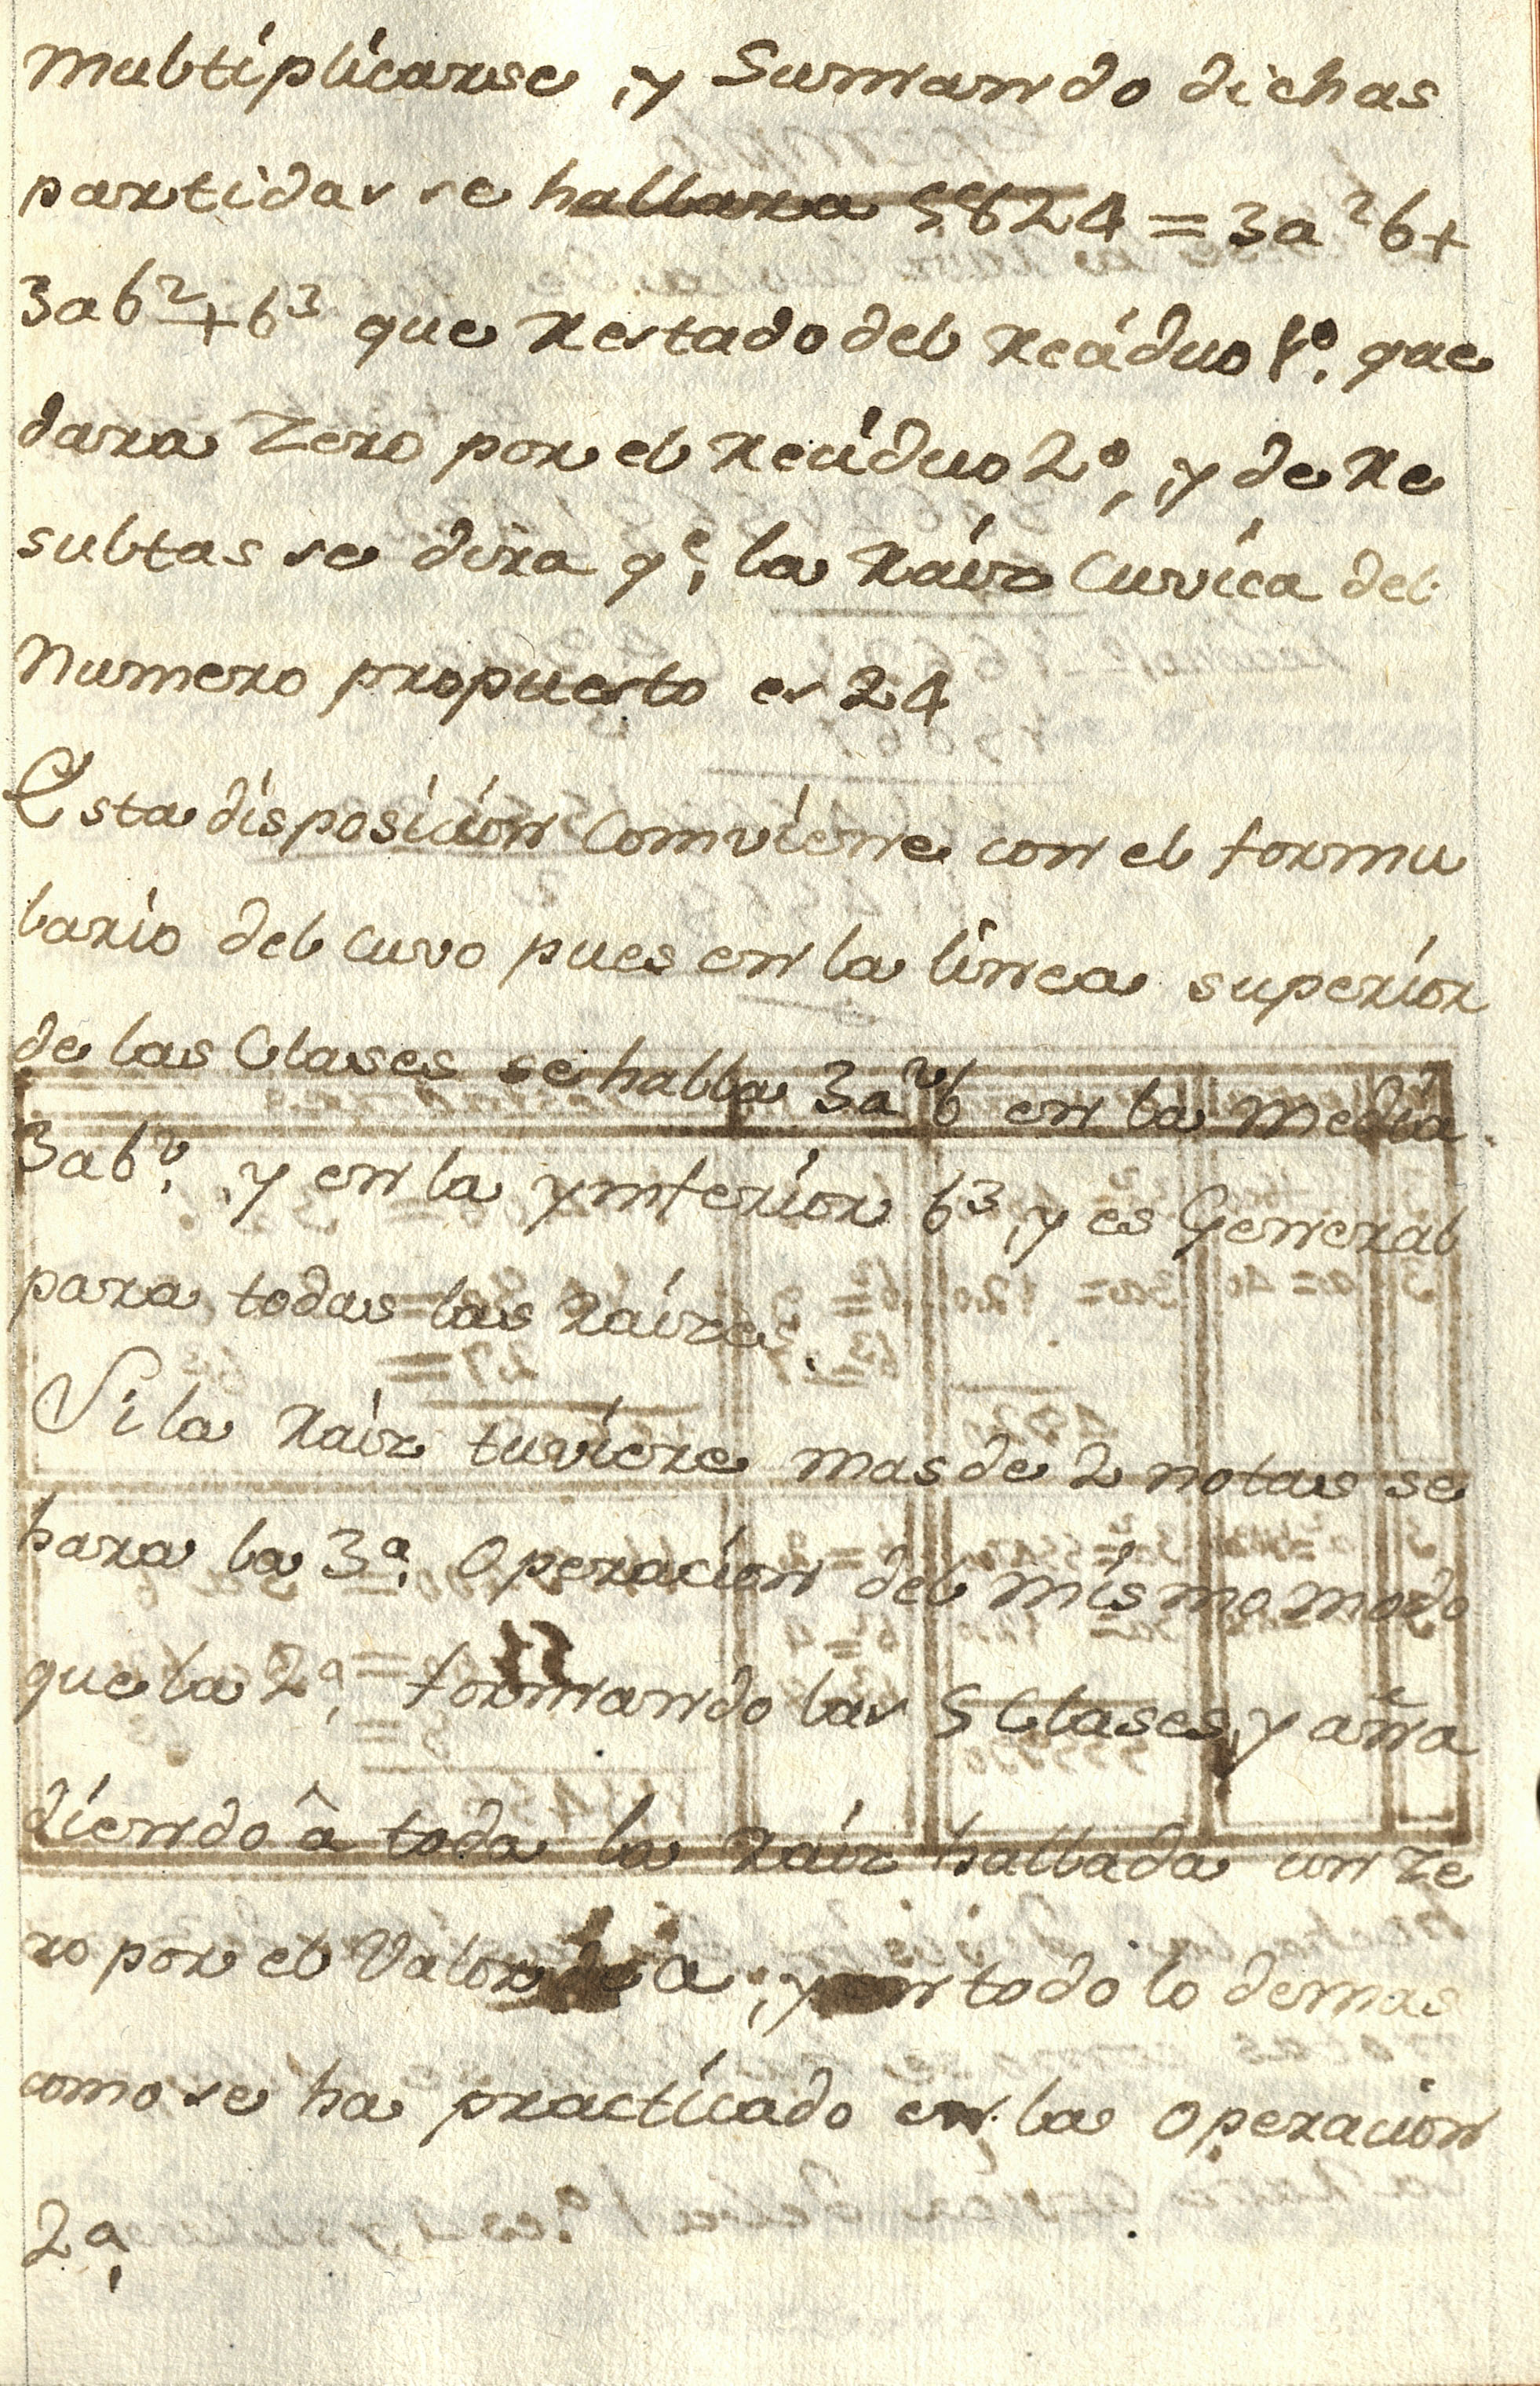 multiplicarse, y Sumando dichas
partidas se hallara 5824 = 3a²b+
3ab²+b³ que Restado del Reciduo 1º. que
dara Zero por el Reciduo 2º, y de Re
sultas se dira qe, la Raiz Cuvica del
Numero propuesto es 24
Esta disposicion Comviene con el formu
lario del Cuvo pues en la linea superior
de las Clases se halla 3a²b en la Media
3ab², y en la ynferior b³, y es General
para todas las Raizes.
Si la Raiz tuviere mas de 2 notas se
hara la 3ª. Operacion del mismo modo
que la 2ª, formando las 5 Clases, y aña
diendo â toda la Raiz hallada un Ze
ro por el Valor de a, y en todo lo demas
como se ha practicado en la Operacion
2ª,